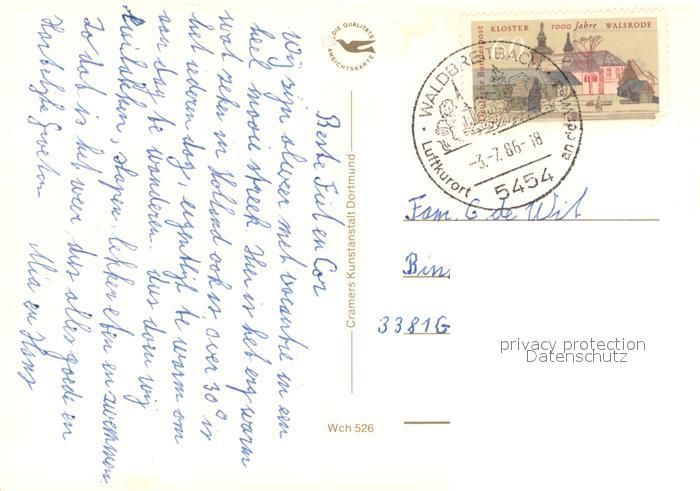 Beste Fiet en Cor
Wij zijn alweer met vacantie in een
heel mooi streek. Hier is het erg warm
wat zeker in Holland ook is, over 30° is
het iedere dag, eigenlijk te warm om
van dag te wandelen, dus doen wij
luilakken, slapen, lekker eten en zwemmen
Zo dat is het weer, dus alles goeds en
Hartelijke Groeten Mia en Hans
DIE QUALITÄTS ANSICHTSKARTE
Cramers Kunstanstalt Dortmund
Wch 526
KLOSTER 1000 Jahre WALSRODE
Deutsche Bundespost
WALDBREITBACH
-3.-7.86-18
Luftkurort
5454
Fam. G de Wit
Bin
3381G
privacy protection
Datenschutz